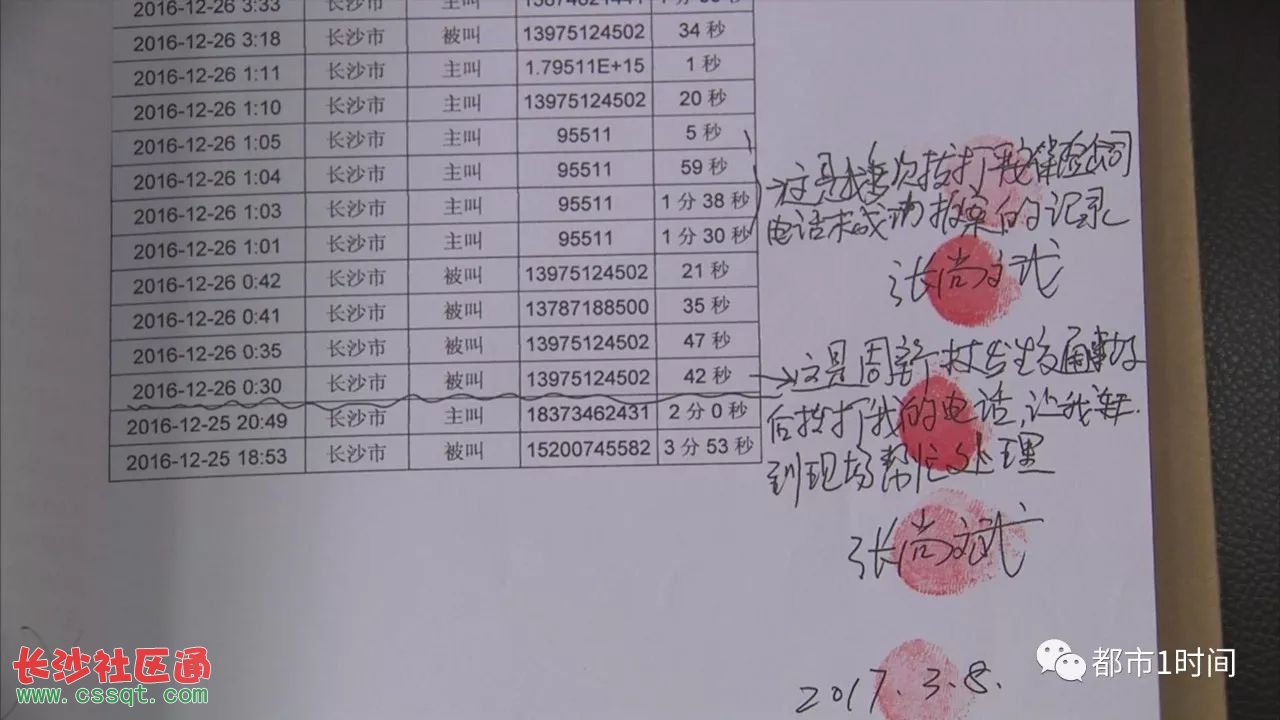 2016-12-26 3:33 长沙市 主叫
2016-12-26 3:18 长沙市 被叫 13975124502 34 秒
2016-12-26 1:11 长沙市 主叫 1.79511E+15 1 秒
2016-12-26 1:10 长沙市 主叫 13975124502 20 秒
2016-12-26 1:05 长沙市 主叫 95511 5 秒
2016-12-26 1:04 长沙市 主叫 95511 59 秒
2016-12-26 1:03 长沙市 主叫 95511 1 分 38 秒
2016-12-26 1:01 长沙市 主叫 95511 1 分 30 秒
2016-12-26 0:42 长沙市 被叫 13975124502 21 秒
2016-12-26 0:41 长沙市 被叫 13787188500 35 秒
2016-12-26 0:35 长沙市 被叫 13975124502 47 秒
2016-12-26 0:30 长沙市 被叫 13975124502 42 秒
2016-12-25 20:49 长沙市 主叫 18373462431 2 分 0 秒
2016-12-25 18:53 长沙市 被叫 15200745582 3 分 53 秒
这是我多次拨打保险公司
电话未成功报案的记录
张尚斌
这是周新发生交通事故
后拨打我的电话,让我
到现场帮忙处理
张尚斌
2017.3.8.
长沙社区通
www.cssqt.com
都市1时间